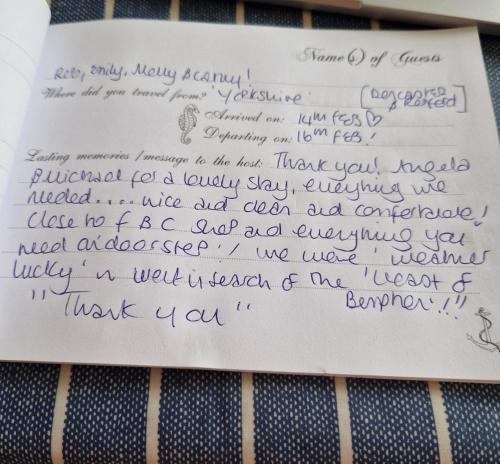 Name(s) of Guests
Rob, Emily, Molly & Canny!
Where did you travel from? 'Yorkshire' [Doncaster
& Retford]
Arrived on: 14th FEB ♡
Departing on: 16th FEB!
Lasting memories / message to the host: Thank you! Angela
& Michael for a lovely stay, everything we
needed.... nice and clean and comfortable!
Close to F B C shop and everything you
need on doorstep! / we were 'weather
lucky' n went in search of the 'Beast of
"Thank you"